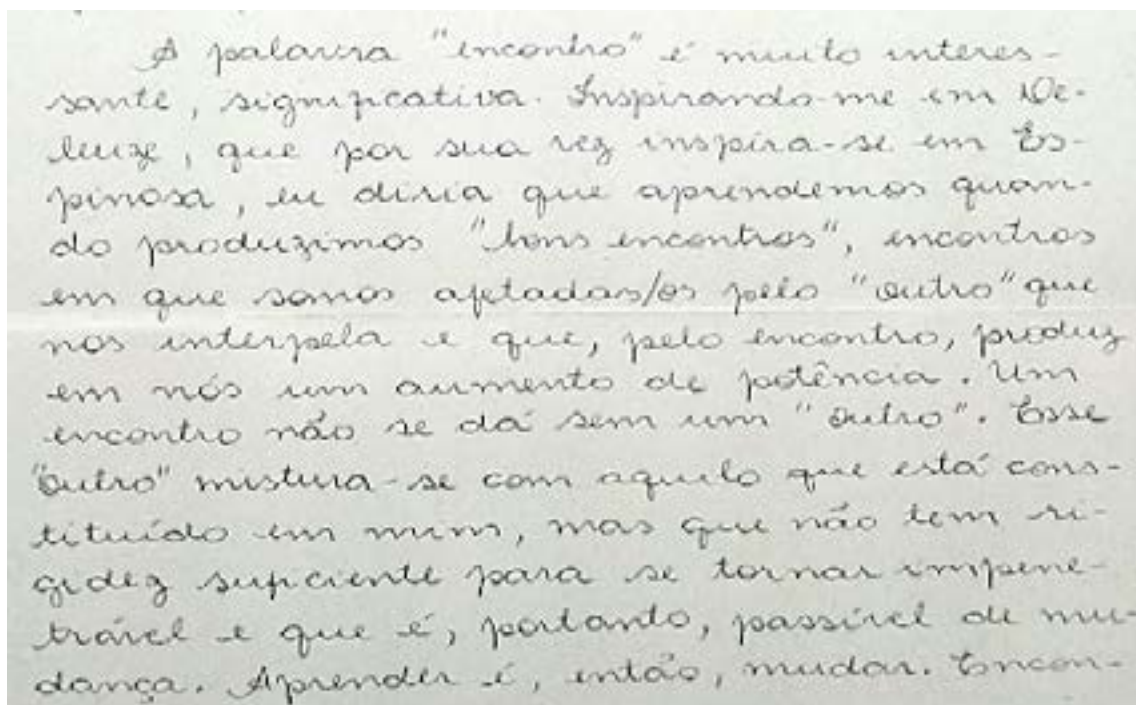 A palavra "encontro" é muito interes-
sante, significativa. Inspirando-me em De-
leuze, que por sua vez inspira-se em Es-
pinosa, eu diria que aprendemos quan-
do produzimos "bons encontros", encontros
em que somos afetadas/os pelo "outro" que
nos interpela e que, pelo encontro, produz
em nós um aumento de potência. Um
encontro não se dá sem um "outro". Esse
"outro" mistura-se com aquilo que está cons-
tituído em mim, mas que não tem ri-
gidez suficiente para se tornar impene-
trável e que é, portanto, passível de mu-
dança. Aprender é, então, mudar. Encon-